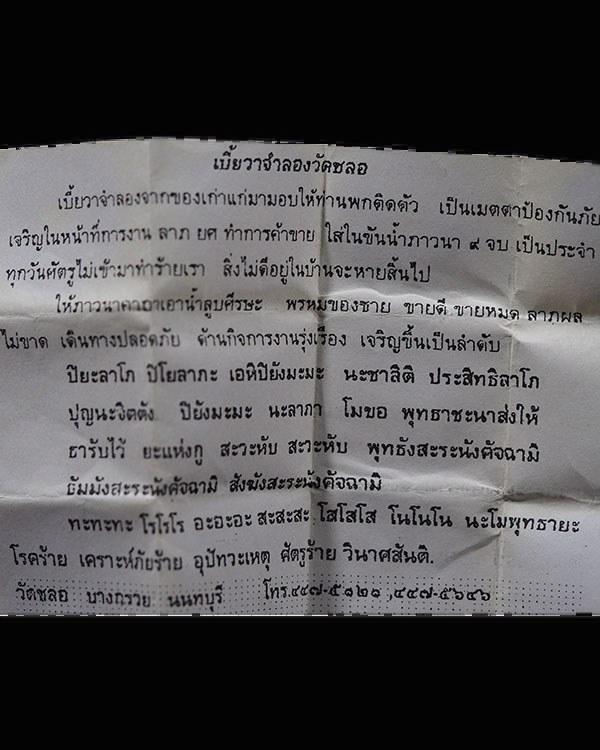 เบี้ยวาจำลองวัดชลอ
เบี้ยวาจำลองจากของเก่าแก่มามอบให้ท่านพกติดตัว เป็นเมตตาป้องกันภัย
เจริญในหน้าที่การงาน ลาภ ยศ ทำการค้าขาย ใส่ในขันน้ำภาวนา ๙ จบ เป็นประจำ
ทุกวันศัตรูไม่เข้ามาทำร้ายเรา สิ่งไม่ดีอยู่ในบ้านจะหายสิ้นไป
ให้ภาวนาคาถาเอาน้ำลูบศีรษะ พรหมของชาย ขายดี ขายหมด ลาภผล
ไม่ขาด เดินทางปลอดภัย ด้านกิจการงานรุ่งเรือง เจริญขึ้นเป็นลำดับ
ปิยะลาโภ ปิโยลาภะ เอหิปิยังมะมะ นะชาสิติ ประสิทธิลาโภ
ปุญนะจิตตัง ปิยังมะมะ นะลาภา โมขอ พุทธาชะนาส่งให้
ธารับไว้ ยะแห่งกู สะวะหับ สะวะหับ พุทธังสะระนังคัจฉามิ
ธัมมังสะระนังคัจฉามิ สังฆังสะระนังคัจฉามิ
ทะทะทะ โรโรโร อะอะอะ สะสะสะ โสโสโส โนโนโน นะโมพุทธายะ
โรคร้าย เคราะห์ภัยร้าย อุปัทวะเหตุ ศัตรูร้าย วินาศสันติ.
วัดชลอ บางกรวย นนทบุรี โทร.๔๔๗-๕๑๒๑ ,๔๔๗-๕๖๔๖